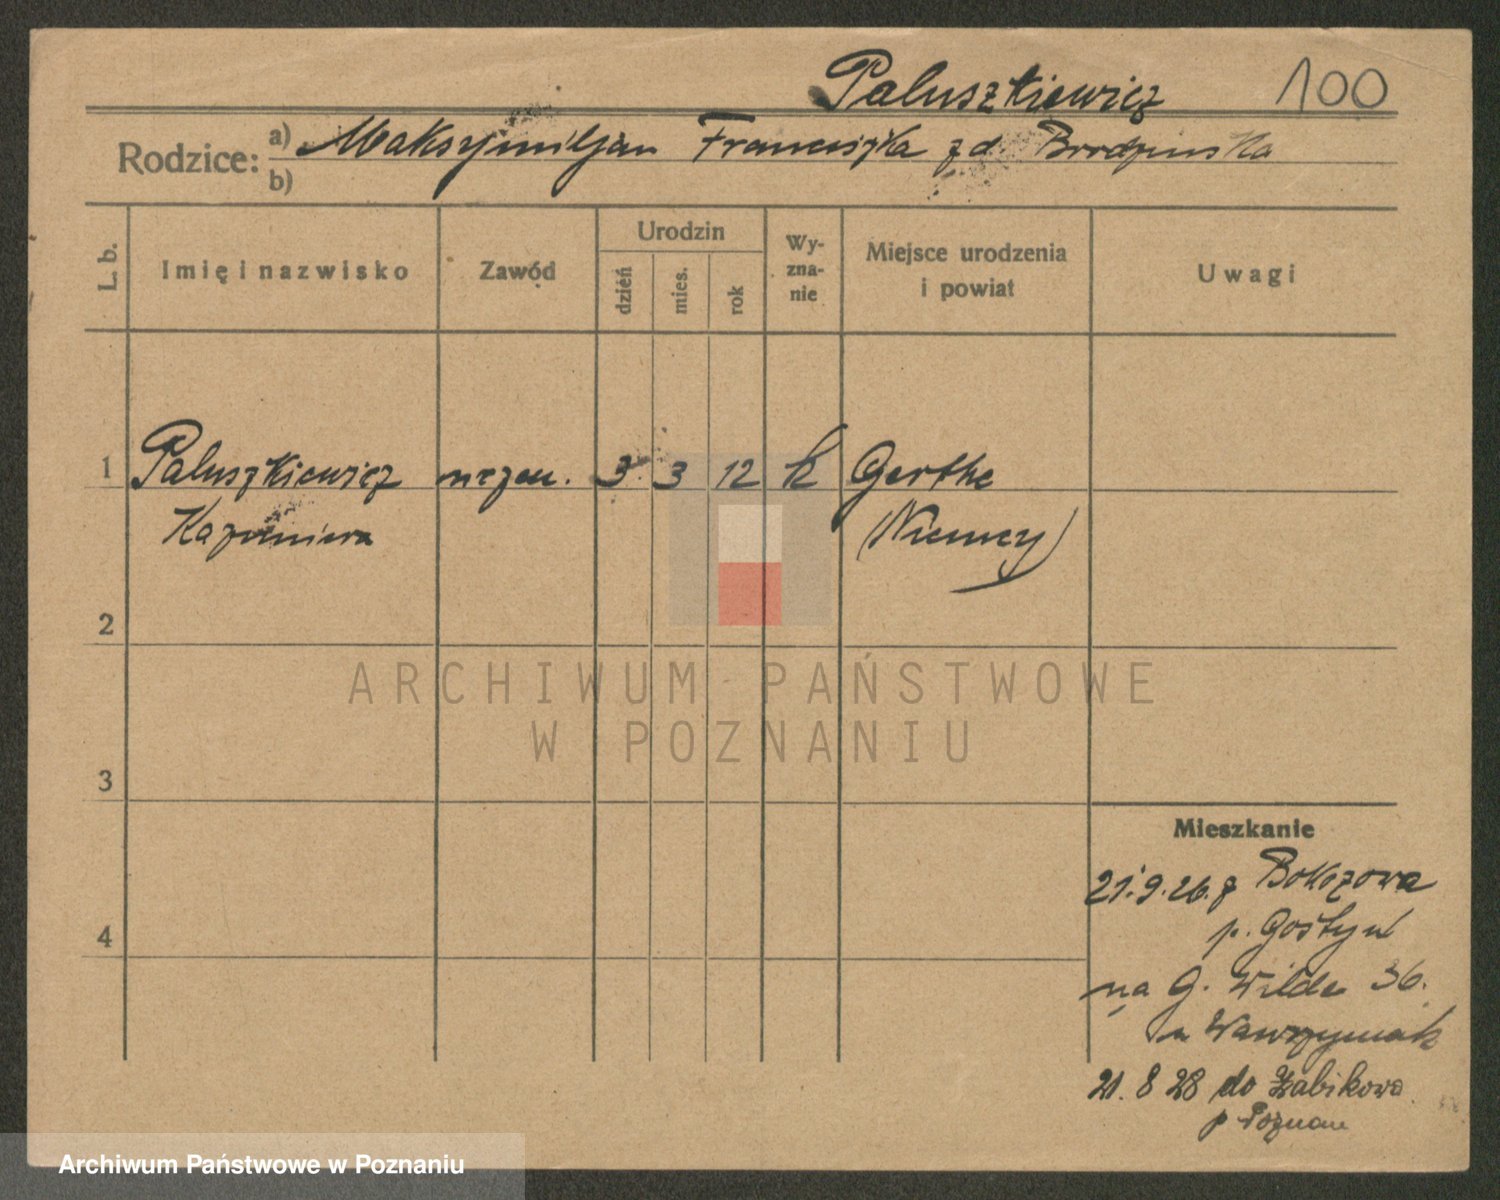 Paluszkiewicz 100
Rodzice: a) Maksymiljan Franciszka z d. Brodzinska
b)
L. b. Imię i nazwisko Zawód Urodzin dzień mies. rok Wy-
zna-
nie Miejsce urodzenia
i powiat Uwagi
1 Paluszkiewicz niezam. 3. 3 12 k Gerthe
Kazimiera (Niemcy)
2
3
4
Mieszkanie
21.9.26. z
p. Gostyń
na G. Wilda 36.
u Wawrzyniak
21. 8 28 do Żabikowa
p Poznań
ARCHIWUM PAŃSTWOWE
W POZNANIU
Archiwum Państwowe w Poznaniu